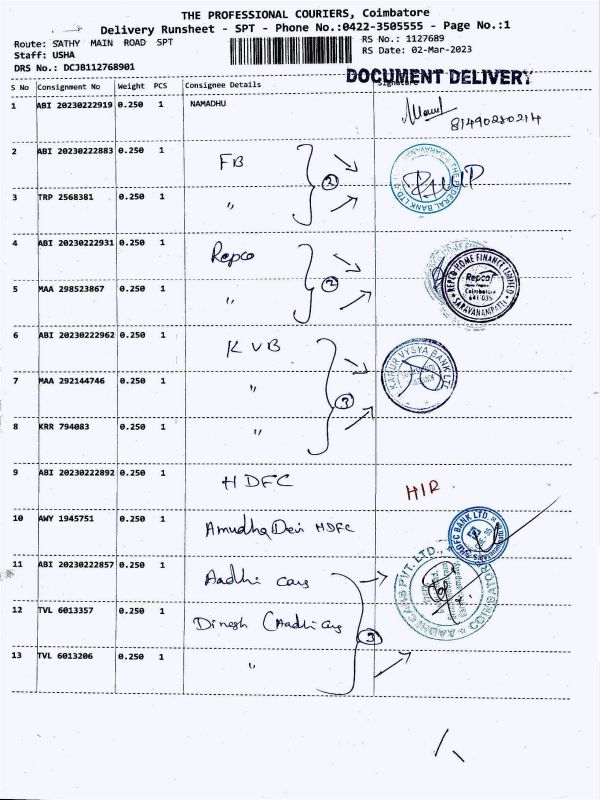 THE PROFESSIONAL COURIERS, Coimbatore
Delivery Runsheet - SPT - Phone No.:0422-3505555 - Page No.:1
Route: SATHY MAIN ROAD SPT
RS No.: 1127689
Staff: USHA
RS Date: 02-Mar-2023
DRS No.: DCJB112768901
DOCUMENT DELIVERY
S No Consignment No Weight PCS Consignee Details Signature
1 ABI 20230222919 0.250 1 NAMADHU
81490280214
2 ABI 20230222883 0.250 1 FB
2
THE FEDERAL BANK LTD
3 TRP 2568381 0.250 1 "
4 ABI 20230222931 0.250 1 Repco
2
REPCO HOME FINANCE LIMITED
Repco
Coimbatore
641 035
SARAVANAMPATTI
5 MAA 298523867 0.250 1 "
6 ABI 20230222962 0.250 1 KVB
KARUR VYSYA BANK LTD
7 MAA 292144746 0.250 1 "
3
8 KRR 794083 0.250 1 "
9 ABI 20230222892 0.250 1 HDFC
HIR
10 AWY 1945751 0.250 1 Amudha Devi HDFC
HDFC BANK LTD.
11 ABI 20230222857 0.250 1 Aadhi cars
AADHI CARS PVT. LTD.,
COIMBATORE
12 TVL 6013357 0.250 1 Dinesh (Aadhi cars
3
13 TVL 6013206 0.250 1 "